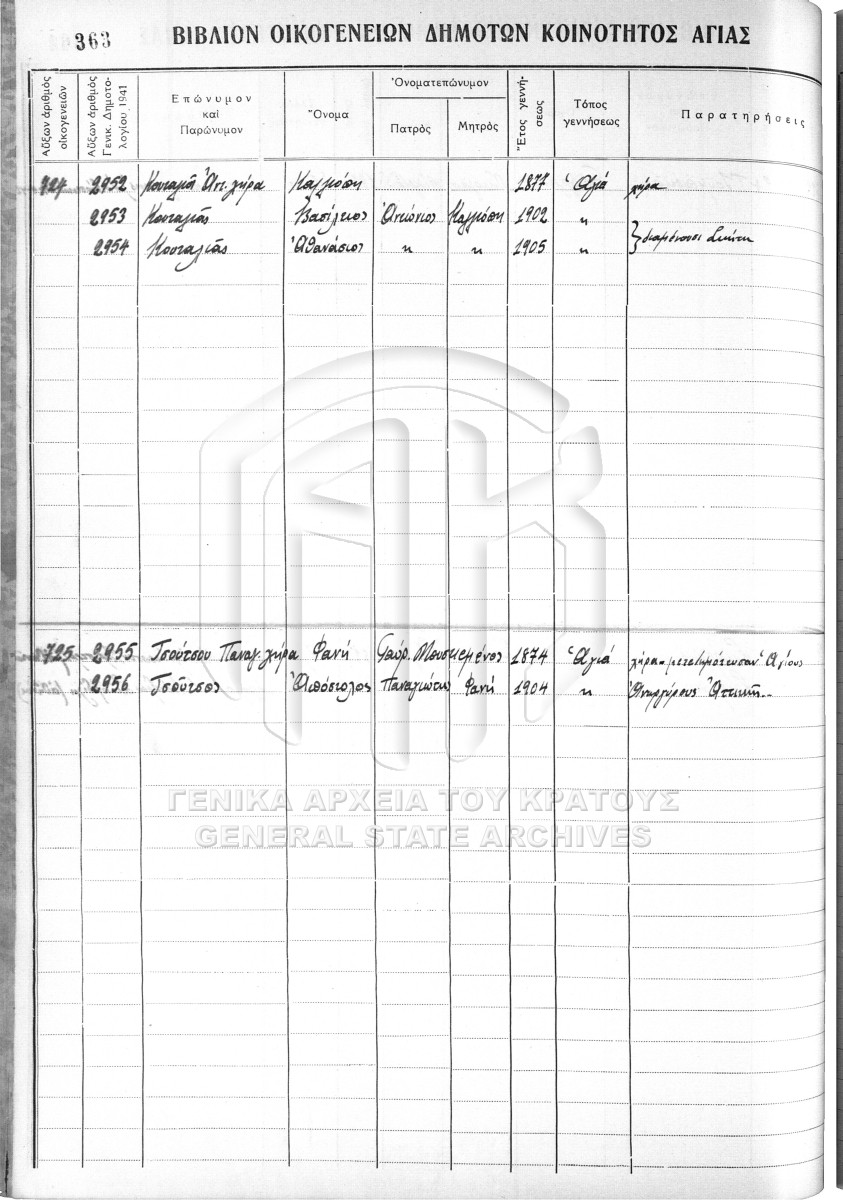 363 ΒΙΒΛΙΟΝ ΟΙΚΟΓΕΝΕΙΩΝ ΔΗΜΟΤΩΝ ΚΟΙΝΟΤΗΤΟΣ ΑΓΙΑΣ
Αὔξων ἀριθμὸς οἰκογενειῶν
Αὔξων ἀριθμὸς Γενικ. Δημοτολογίου 1941
Ἐπώνυμον καὶ Παρώνυμον
Ὄνομα
Ὀνοματεπώνυμον
Πατρὸς Μητρὸς
Ἔτος γεννήσεως
Τόπος γεννήσεως
Παρατηρήσεις
724 2952 Κουταλιᾶ Ἀντ. χήρα Καλλιόπη 1877 Ἁγιά χήρα
2953 Κουταλιᾶς Βασίλειος Ἀντώνιος Καλλιόπη 1902 "
2954 Κουταλιᾶς Ἀθανάσιος " " 1905 " } διαμένουσι
725 2955 Τσούτσου Παναγ. χήρα Φανή Γεώρ. 1874 Ἁγιά χήρα - μετεδημότευσαν Ἁγίους
2956 Τσοῦτσος Ἀπόστολος Παναγιώτης Φανή 1904 " Ἀναργύρους Ἀττικῆς
ΓΕΝΙΚΑ ΑΡΧΕΙΑ ΤΟΥ ΚΡΑΤΟΥΣ
GENERAL STATE ARCHIVES